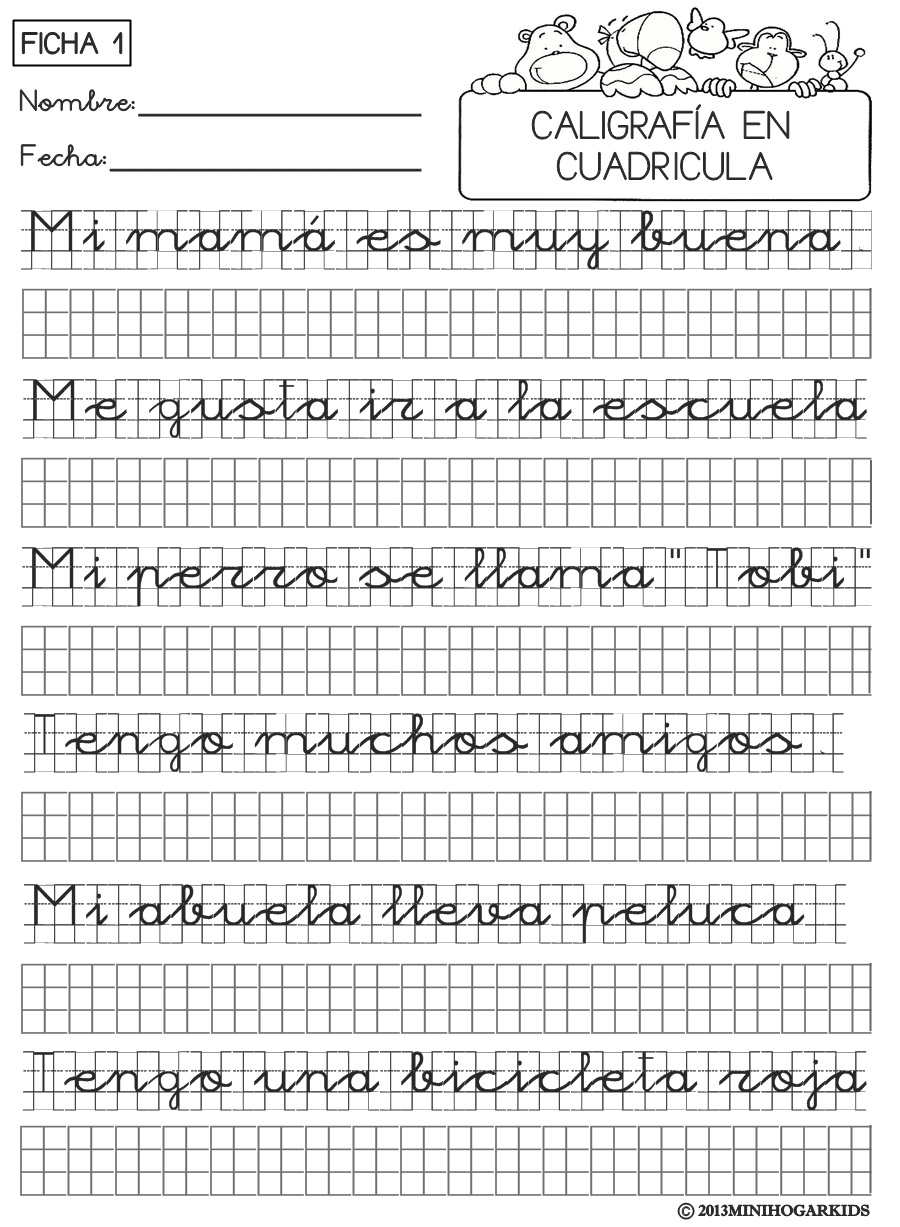 FICHA 1
Nombre:
Fecha:
CALIGRAFÍA EN
CUADRICULA
Mi mamá es muy buena
Me gusta ir a la escuela
Mi perro se llama "Tobi"
Tengo muchos amigos
Mi abuela lleva peluca
Tengo una bicicleta roja
© 2013MINIHOGARKIDS